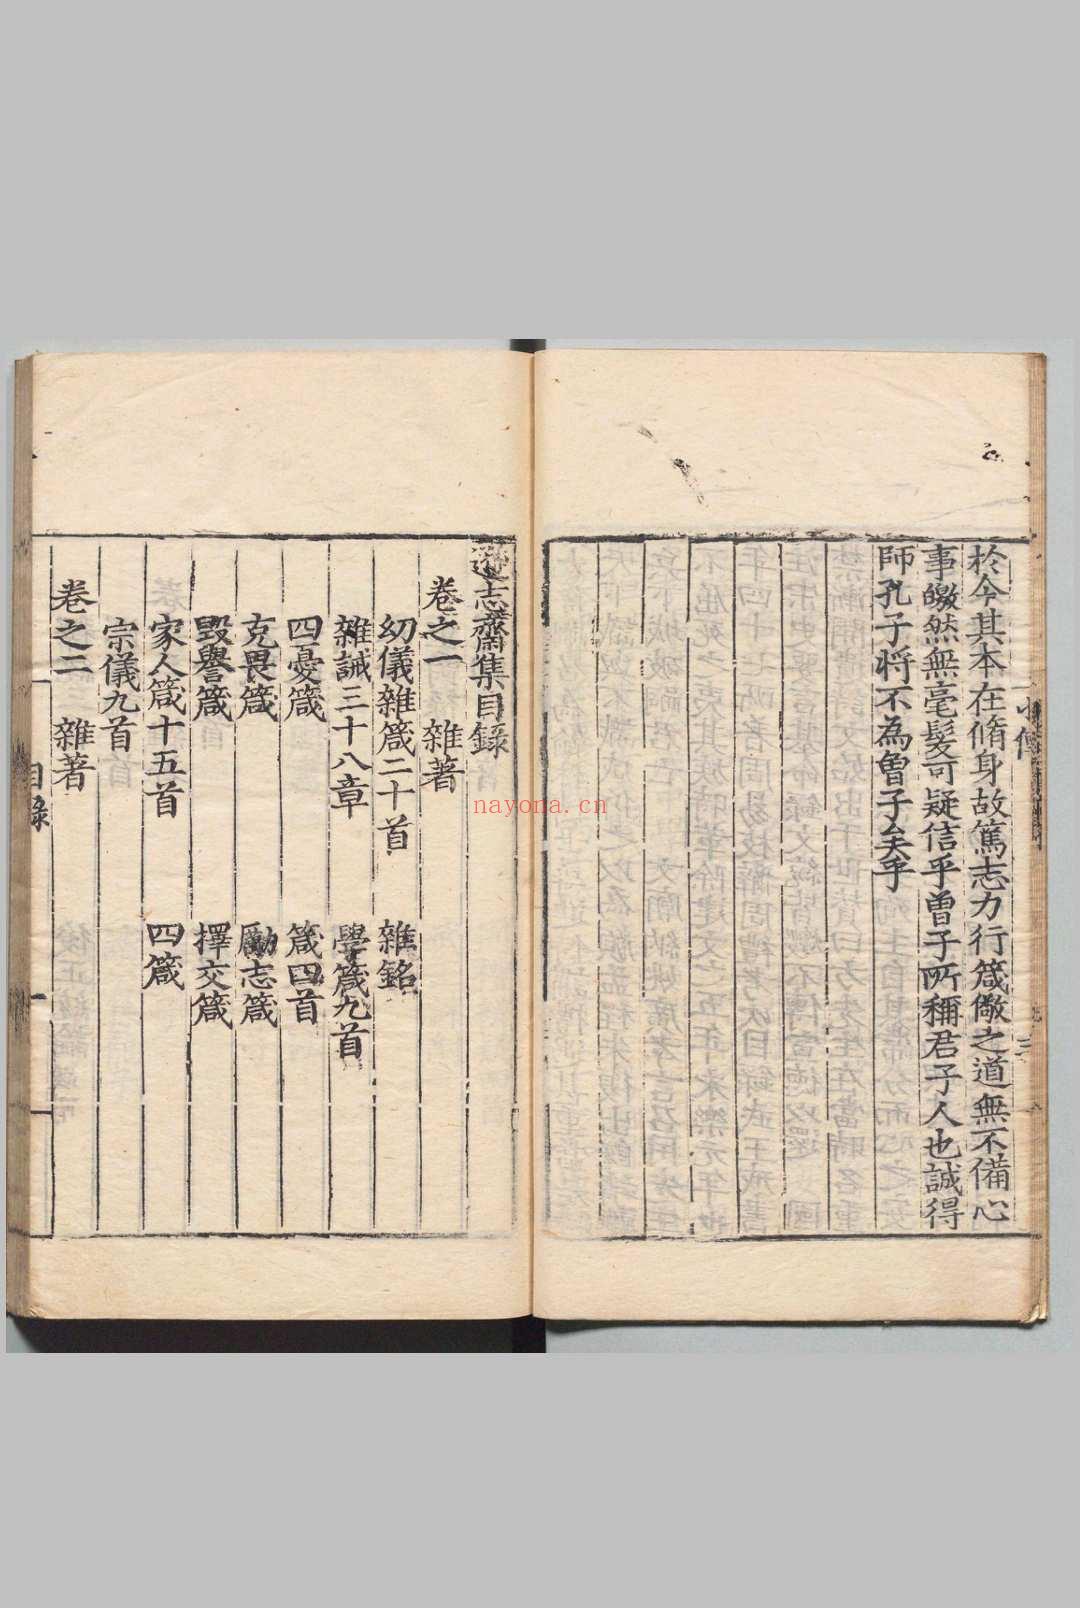 於今其本在脩身故篤志力行箴儆之道無不備心
事皦然無毫髮可疑信乎曾子所稱君子人也誠得
師孔子将不為魯子矣乎
遜志齋集目録
卷之一 雜著
幼儀雜箴二十首 雜銘
雜誡三十八章 學箴九首
四憂箴 箴四首
克畏箴 勵志箴
毀譽箴 擇交箴
家人箴十五首 四箴
宗儀九首
卷之二 雜著
目録
一
nayona.cn